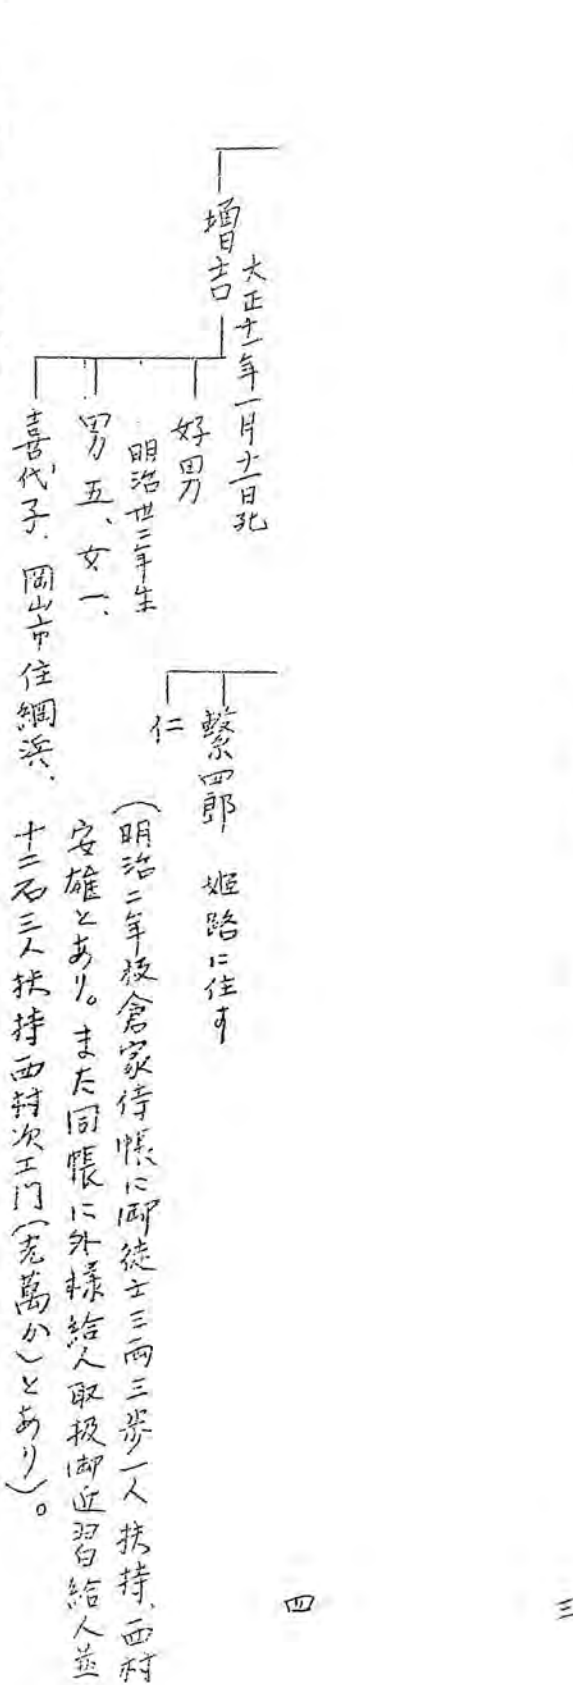 増吉
大正十一年一月十一日死
好男
明治卅二年生
男五、女一、
喜代子、岡山市住網浜、
繋四郎 姫路に住す
仁
(明治二年板倉家侍帳に御徒士三両三歩一人扶持、西村
安雄とあり。また同帳に外様給人取扱御近習給人並
十二石三人扶持西村次エ門(克萬か)とあり)。
三
四